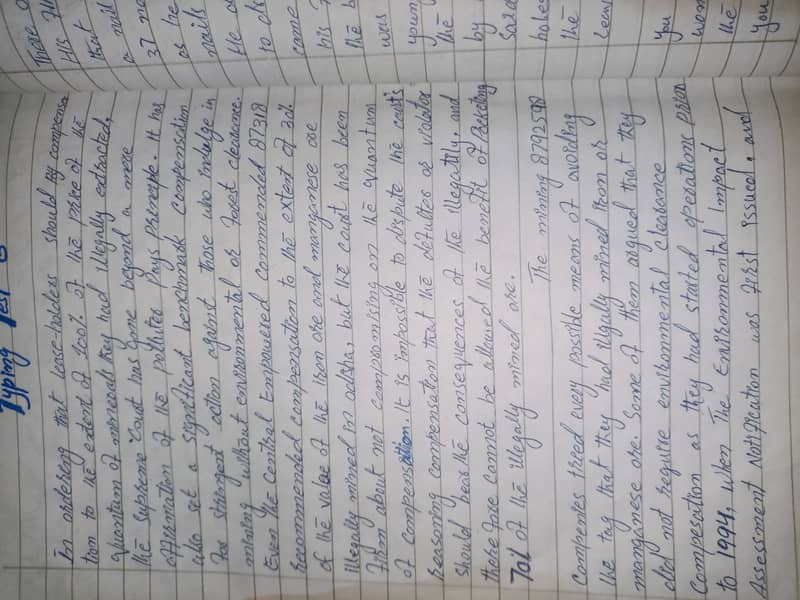 Typing Test
In ordering that lease-holders should pay compensa
tion to the extent of 100% of the price of the
quantum of minerals they had illegally extracted,
the supreme court has gone beyond a mere
affirmation of the polluter pays principe. It has
also set a significant benchmark compensation
for stringent action against those who indulge in
mining without environmental or forest clearance.
Even the Central Empowered commended 87318
Recommended compensation to the extent of 30%
of the value of the iron ore and manganese ore
illegally mined in odisha, but the court has been
firm about not compromising on the quantum
of compensation. It is impossible to dispute the court's
reasoning compensation that the defulter or violator
should bear the consequences of the illegatity, and
there fore cannot be allowed the benefit of
70% of the illegally mined ore.
The mining 8792590
companies tried every possible means of avoiding
the tag that they had illegally mined iron or
manganese ore. Some of them argued that they
did not require environmental clearance
Compesation as they had started operations prior
to 1994, when The Environmental Impact
Assessment Notification was first issued. and
There
His
that
a nail
37
as he
nails
He
to
come
his
the
was
young
the
by
Said
holes
the
leave
you
woun
the
you